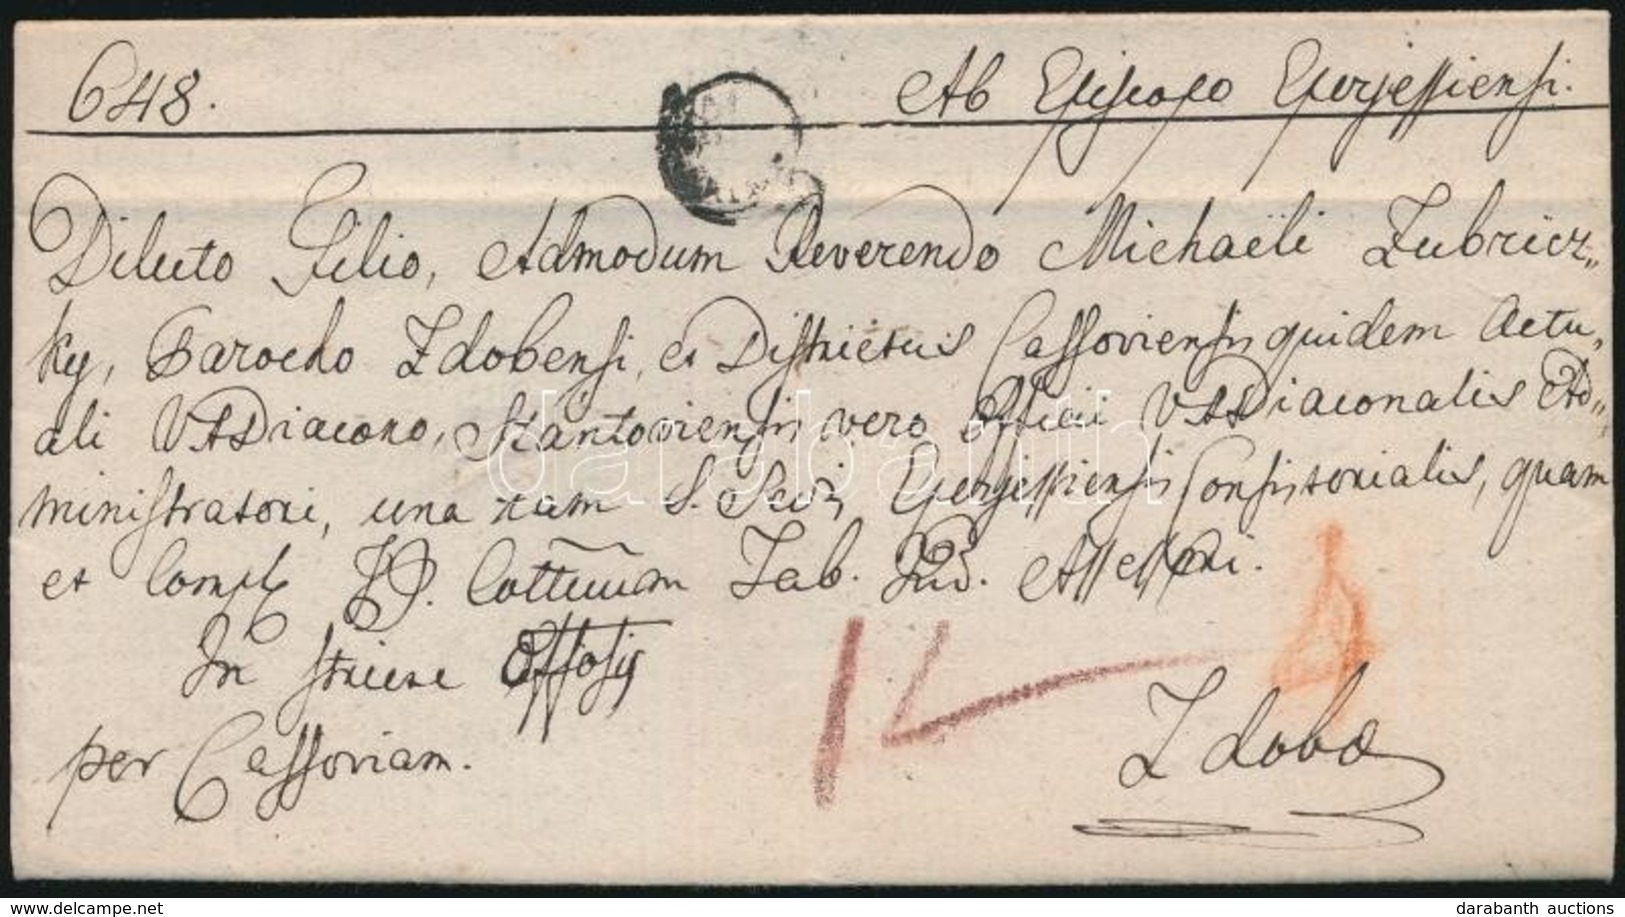 648.
Ab Episcopo Eperjessiensi.
Dilecto Filio, Admodum Reverendo Michaëli Zubricz„
ky, Parocho Zdobensi, et Districtus Cassoviensis quidem Actu„
ali VADiacono, Szántoviensis vero Officii VADiaconalis Ad„
ministratori, una tam S. Sedis Eperjessiensis Consistorialis, quam
et Compl. Cottuum Tab. Jud. Assessori.
In struse Offosis
per Cassoviam.
12
Zdoba
darabanth
delcampe.net
darabanth auctions